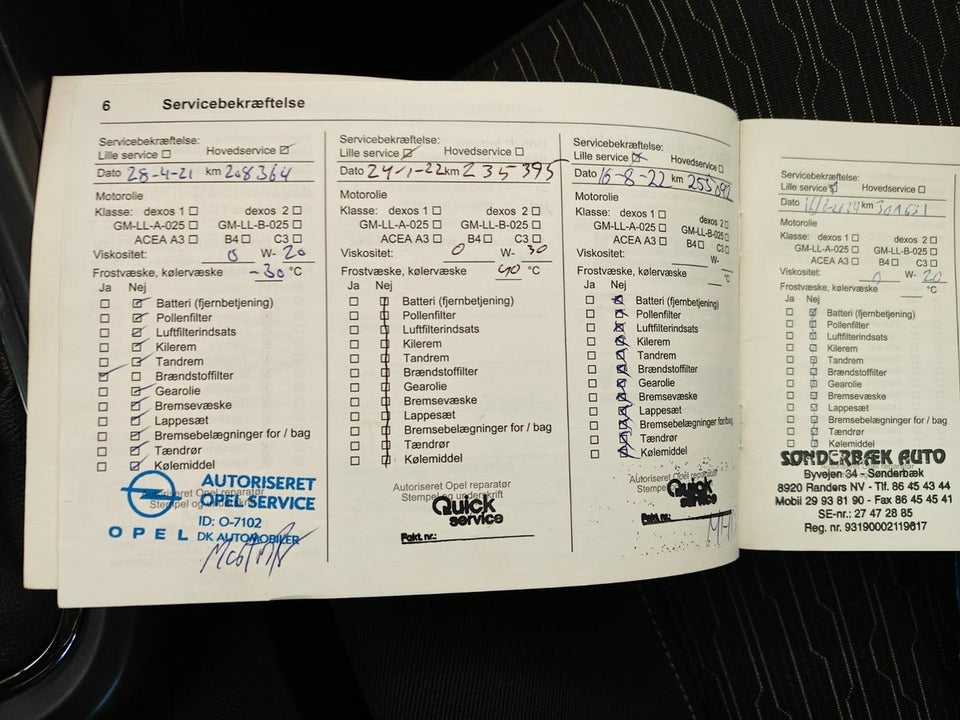 6 Servicebekræftelse
Servicebekræftelse:
Lille service ☐ Hovedservice ☑
Dato 28-4-21 km 208364
Motorolie
Klasse: dexos 1 ☐ dexos 2 ☐
GM-LL-A-025 ☐ GM-LL-B-025 ☐
ACEA A3 ☐ B4 ☐ C3 ☐
Viskositet: 0 W- 20
Frostvæske, kølervæske -30 °C
Ja Nej
☐ ☑ Batteri (fjernbetjening)
☐ ☑ Pollenfilter
☐ ☑ Luftfilterindsats
☐ ☑ Kilerem
☐ ☑ Tandrem
☑ ☐ Brændstoffilter
☐ ☑ Gearolie
☐ ☑ Bremsevæske
☐ ☑ Lappesæt
☐ ☑ Bremsebelægninger for / bag
☐ ☑ Tændrør
☐ ☑ Kølemiddel
Autoriseret Opel reparatør
Stempel og underskrift
AUTORISERET
OPEL SERVICE
ID: O-7102
OPEL DK AUTOMOBILER
Servicebekræftelse:
Lille service ☑ Hovedservice ☐
Dato 24-1-22 km 235395
Motorolie
Klasse: dexos 1 ☐ dexos 2 ☐
GM-LL-A-025 ☐ GM-LL-B-025 ☐
ACEA A3 ☐ B4 ☐ C3 ☐
Viskositet: 0 W- 30
Frostvæske, kølervæske 40 °C
Ja Nej
☐ ☐ Batteri (fjernbetjening)
☐ ☐ Pollenfilter
☐ ☐ Luftfilterindsats
☐ ☐ Kilerem
☐ ☐ Tandrem
☐ ☐ Brændstoffilter
☐ ☐ Gearolie
☐ ☐ Bremsevæske
☐ ☐ Lappesæt
☐ ☐ Bremsebelægninger for / bag
☐ ☐ Tændrør
☐ ☐ Kølemiddel
Autoriseret Opel reparatør
Stempel og underskrift
Quick
service
Fakt. nr.:
Servicebekræftelse:
Lille service ☑ Hovedservice ☐
Dato 16-8-22 km 255092
Motorolie
Klasse: dexos 1 ☐ dexos 2 ☐
GM-LL-A-025 ☐ GM-LL-B-025 ☐
ACEA A3 ☐ B4 ☐ C3 ☐
Viskositet: W-
Frostvæske, kølervæske °C
Ja Nej
☐ ☒ Batteri (fjernbetjening)
☐ ☒ Pollenfilter
☐ ☒ Luftfilterindsats
☐ ☒ Kilerem
☐ ☒ Tandrem
☐ ☒ Brændstoffilter
☐ ☒ Gearolie
☐ ☒ Bremsevæske
☐ ☒ Lappesæt
☐ ☒ Bremsebelægninger for/bag
☐ ☒ Tændrør
☐ ☒ Kølemiddel
Autoriseret Opel reparatør
Quick
service
Fakt. nr.:
Servicebekræftelse:
Lille service ☑ Hovedservice ☐
Dato km 301631
Motorolie
Klasse: dexos 1 ☐ dexos 2 ☐
GM-LL-A-025 ☐ GM-LL-B-025 ☐
ACEA A3 ☐ B4 ☐ C3 ☐
Viskositet: 0 W- 20
Frostvæske, kølervæske °C
Ja Nej
☐ ☑ Batteri (fjernbetjening)
☐ ☑ Pollenfilter
☐ ☑ Luftfilterindsats
☐ ☑ Kilerem
☐ ☑ Tandrem
☐ ☑ Brændstoffilter
☐ ☑ Gearolie
☐ ☑ Bremsevæske
☐ ☑ Lappesæt
☐ ☑ Bremsebelægninger for / bag
☐ ☑ Tændrør
☐ ☑ Kølemiddel
SØNDERBÆK AUTO
Byvejen 34 - Sønderbæk
8920 Randers NV - Tlf. 86 45 43 44
Mobil 29 93 81 90 - Fax 86 45 45 41
SE-nr.: 27 47 28 85
Reg. nr. 93190002119817